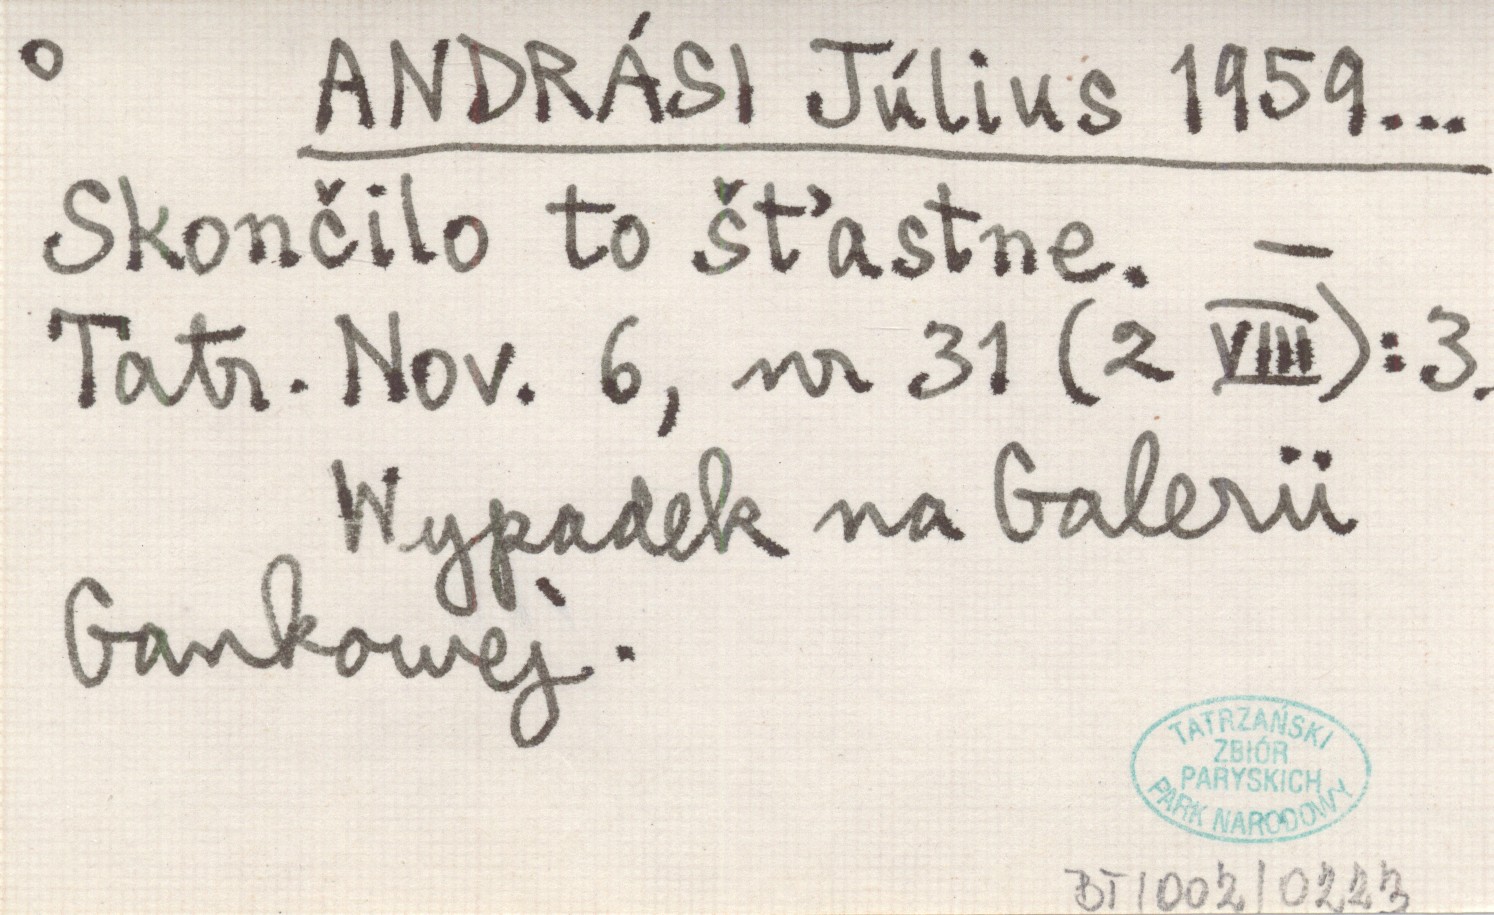 ° ANDRÁSI Július 1959...
Skončilo to šťastne. —
Tatr. Nov. 6, nr 31 (2 VIII): 3.
Wypadek na Galerii
Gankowej.
TATRZAŃSKI
ZBIÓR
PARYSKICH
PARK NARODOWY
BT/002/0223